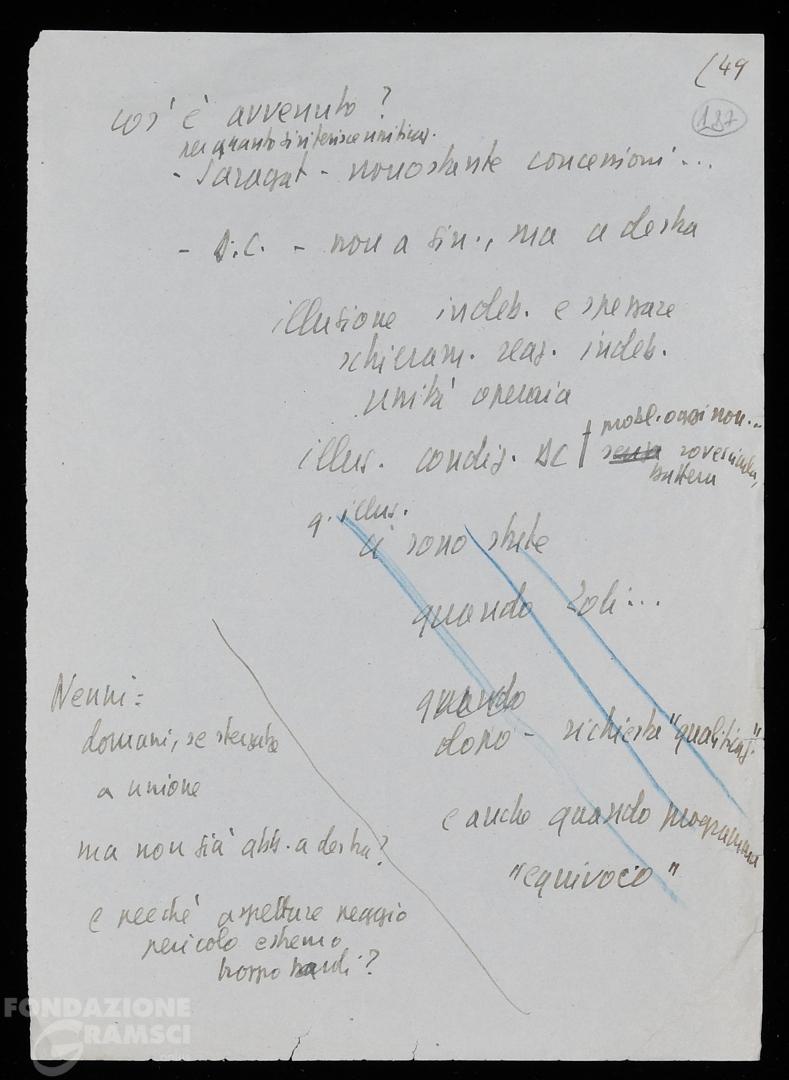 (49
187
cos' è avvenuto?
per quanto si riferisce unificaz.
- Saragat - nonostante concessioni...
- D.C. - non a sin., ma a destra
illusione indeb. e spezzare
schieram. reaz. indeb.
unità operaia
illus. condiz. DC
probl. oggi non...
senza rovesciarla,
q. illus.
ci sono state
quando Zoli...
quando
dopo - richiesta "qualificaz."
e anche quando programma
"equivoco"
Nenni:
domani, se sterzata
a unione
ma non già abb. a destra?
e perché aspettare peggio
pericolo estremo
troppo tardi?
FONDAZIONE
GRAMSCI